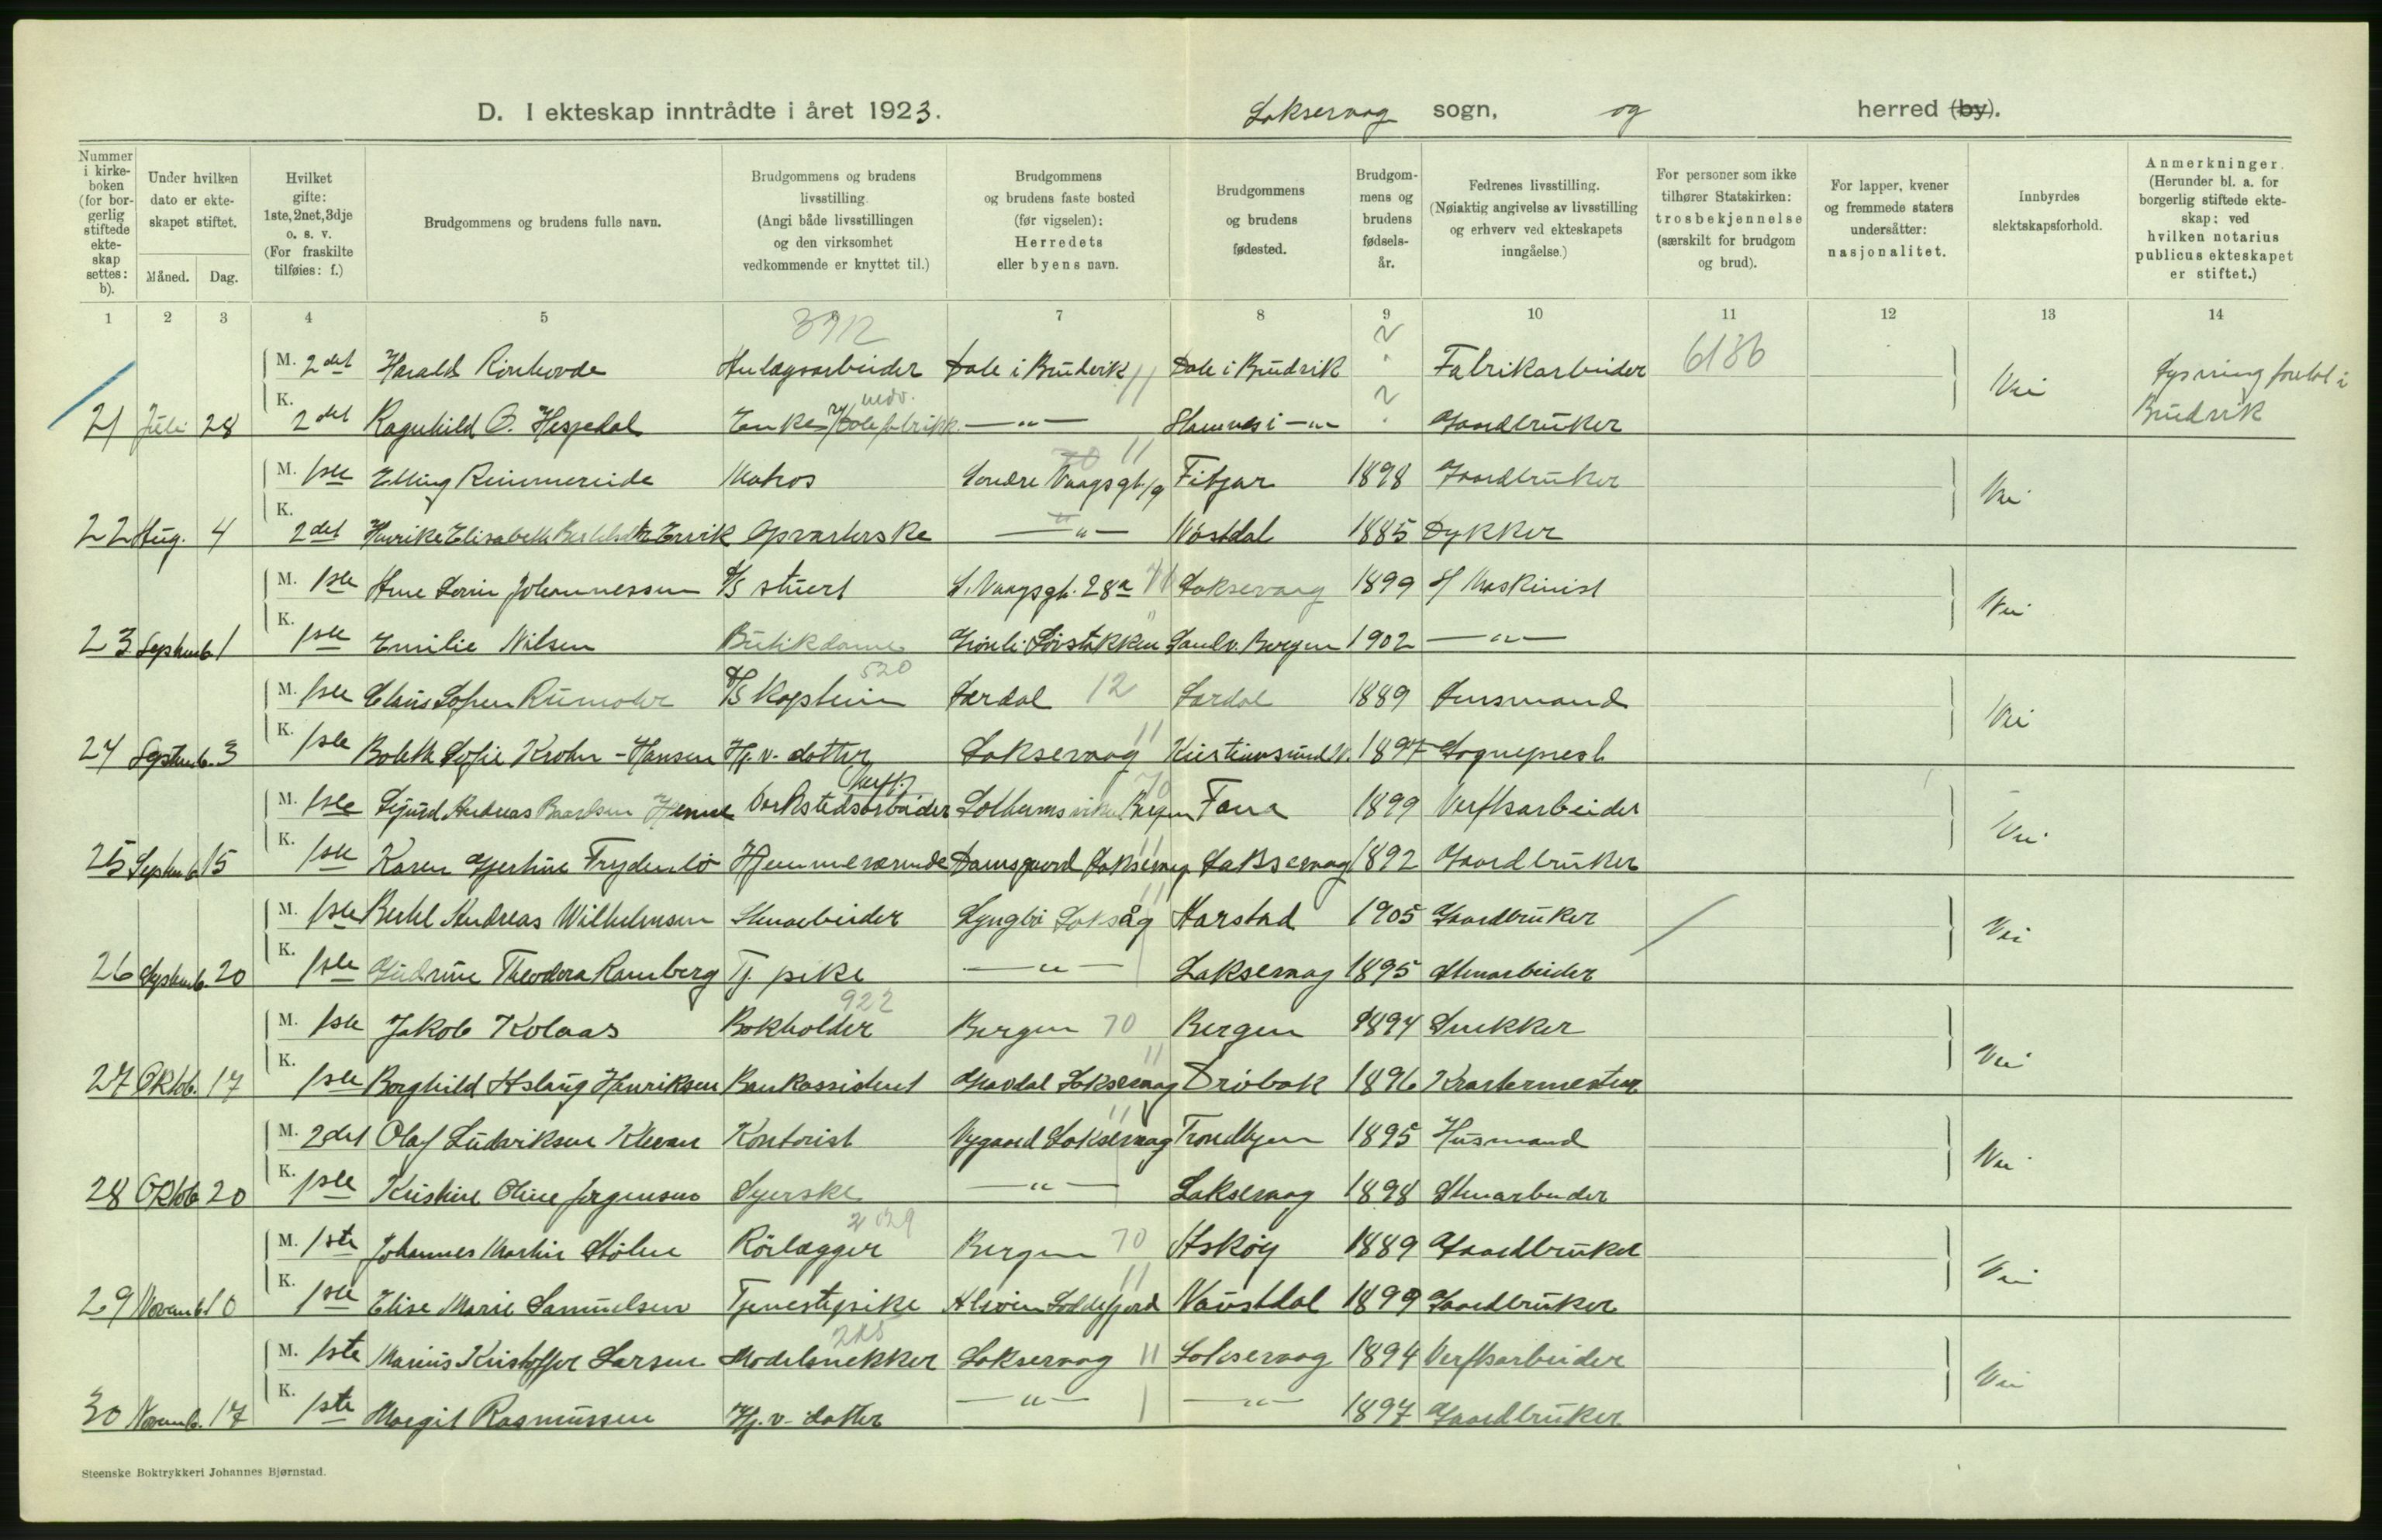 D. I ekteskap inntrådte i året 1923. Laksevaag sogn, og herred (by).
Nummer i kirkeboken (for borgerlig stiftede ekteskap settes: b).
Under hvilken dato er ekteskapet stiftet.
Måned. Dag.
Hvilket gifte: 1ste, 2net, 3dje o. s. v. (For fraskilte tilføies: f.)
Brudgommens og brudens fulle navn.
Brudgommens og brudens livsstilling. (Angi både livsstillingen og den virksomhet vedkommende er knyttet til.)
Brudgommens og brudens faste bosted (før vigselen): Herredets eller byens navn.
Brudgommens og brudens fødested.
Brudgommens og brudens fødselsår.
Fedrenes livsstilling. (Nøiaktig angivelse av livsstilling og erhverv ved ekteskapets inngåelse.)
For personer som ikke tilhører Statskirken: trosbekjennelse (særskilt for brudgom og brud).
For lapper, kvener og fremmede staters undersåtter: nasjonalitet.
Innbyrdes slektskapsforhold.
Anmerkninger. (Herunder bl. a. for borgerlig stiftede ekteskap; ved hvilken notarius publicus ekteskapet er stiftet.)
1 2 3 4 5 6 7 8 9 10 11 12 13 14
M. 2det Harald Dale i Bruvik 11 Dale i Bruvik ? Fabrikarbeider 6186 Nei Lysning i
21 Juli 28 K. 2det Ragnhild O. Hespedal Enke —"— i —"— ? Gaardbruker Bruvik
M. 1ste Elling Rimmereide Matros Søndre Vaagsgt. 19 11 Fitjar 1898 Gaardbruker Nei
22 Aug. 4 K. 2det Henrike Elisabeth Ervik Opvarterske —"— 1885 Dykker
M. 1ste Arne Johannessen D/S stuert S. Vaagsgt. 28a Laksevaag 1899 Maskinist Nei
23 Septemb. 1 K. 1ste Emilie Nilsen Butikdame Løvstakken Bergen 1902 —"—
M. 1ste Claus Rumohr 520 D/S Kaptein Lærdal 12 Lærdal 1889 Lensmand Nei
24 Septemb. 3 K. 1ste Boleth Sofie Krohn-Hansen Hj. v. datter Laksevaag 11 Kristiansund N. 1897 Sogneprest
M. 1ste Sigurd Andreas Verkstedsarbeider Solheimsviken Bergen 70 Fana 1899 Verftsarbeider Nei
25 Septemb. 15 K. 1ste Karen Gjertine Frydenbø Hjemmeværende Damsgaard Laksevaag 11 Laksevaag 1892 Gaardbruker
M. 1ste Bertel Andreas Wilhelmsen Stenarbeider Lyngbø Laksåg 11 Harstad 1905 Gaardbruker Nei
26 Septemb. 20 K. 1ste Gudrun Theodora Ramberg Tj. pike —"— Laksevaag 1895 Stenarbeider
M. 1ste Jakob Kolaas 922 Bokholder Bergen 70 Bergen 1894 Snekker Nei
27 Oktob. 17 K. 1ste Borghild Aslaug Henriksen Bankassistent Gravdal Laksevaag 11 Drøbak 1896 Kvartermester
M. 2det Olaf Ludviksen Klevan Kontorist Nygaard Laksevaag 11 Trondhjem 1895 Husmand Nei
28 Oktob 20 K. 1ste Kristine Oline Jørgensen Syerske —"— Laksevaag 1898 Stenarbeider
M. 1ste Johannes Martin Stølen Rørlægger Bergen 70 Askøy 1889 Gaardbruker Nei
29 Novemb. 10 K. 1ste Elise Marie Samuelsen Tjenestepike Alvøen Loddefjord 11 Naustdal 1899 Gaardbruker
M. 1ste Marius Kristoffer Larsen Modelsnekker Laksevaag 11 Laksevaag 1894 Verftsarbeider Nei
30 Novemb. 17 K. 1ste Margit Rasmussen Hj. v. datter —"— —"— 1897 Gaardbruker
Steenske Boktrykkeri Johannes Bjørnstad.